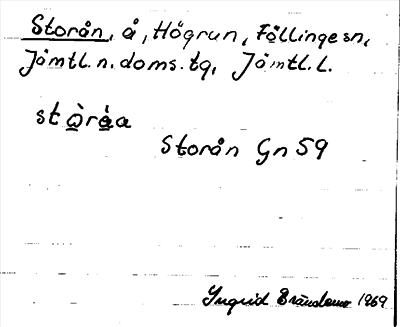 Storån, å, Högrun, Föllinge sn,
Jämtl. n. doms. tg, Jämtl. l.
stòráa
Storån Gn 59
Ingrid 1969